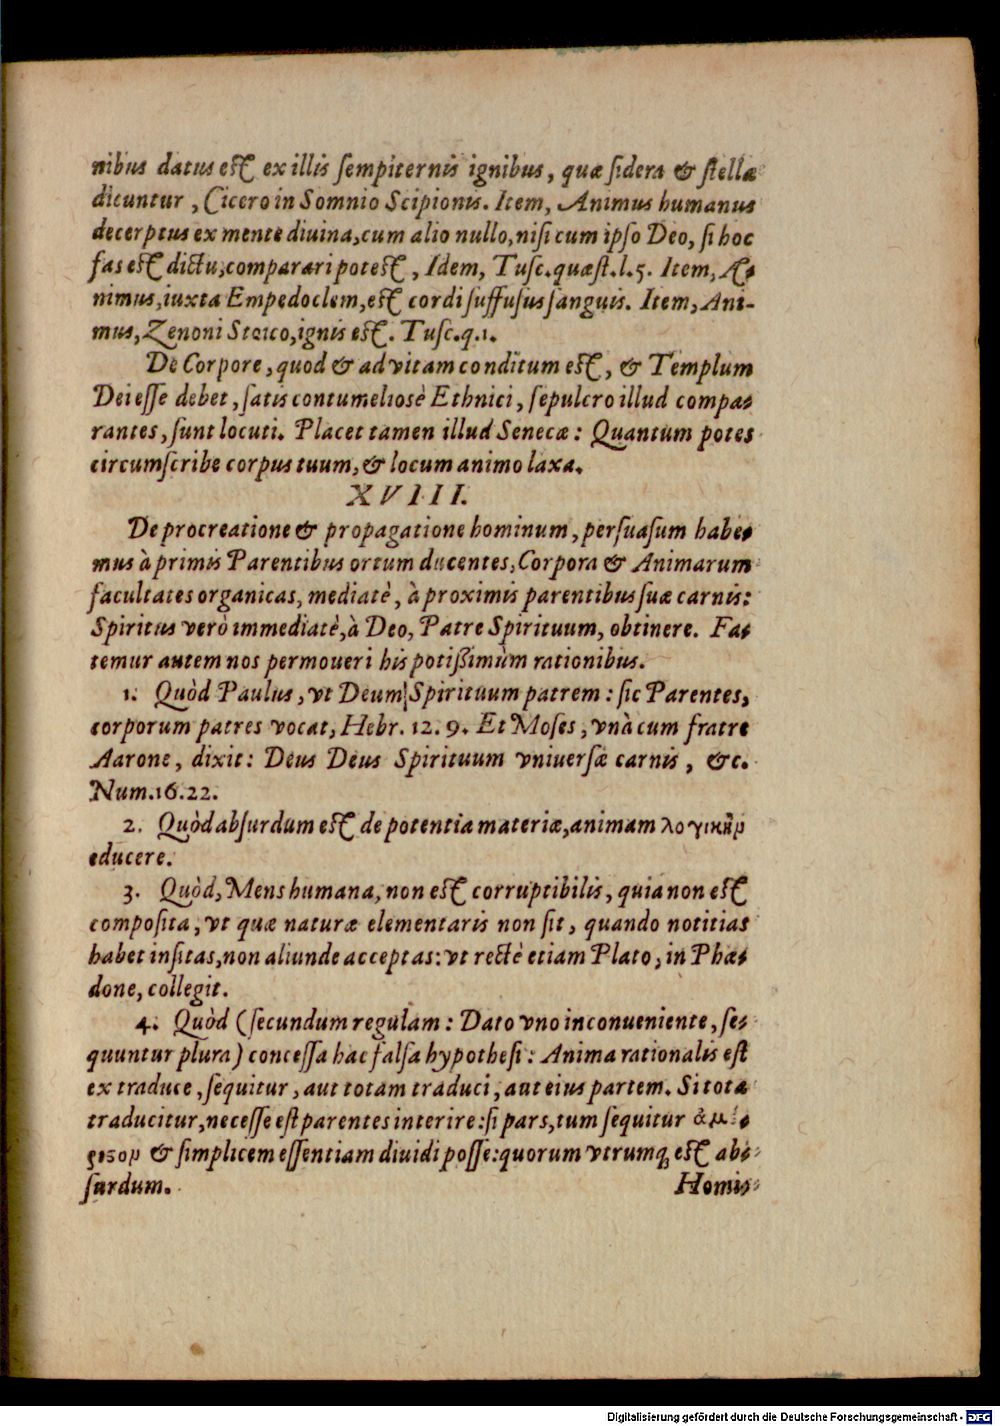 nibus datus est ex illis ſempiternis ignibus, quæ ſidera & ſtellæ
dicuntur, Cicero in Somnio Scipionis. Item, Animus humanus
decerptus ex mente diuina, cum alio nullo, niſi cum ipſo Deo, ſi hoc
fas est dictu, comparari potest, Idem, Tuſc. quæſt. l. 5. Item, A-
nimus, iuxta Empedoclem, est cordi ſuffuſus ſanguis. Item, Ani-
mus, Zenoni Stoico, ignis est. Tuſc. q. 1.
De Corpore, quod & ad vitam conditum est, & Templum
Dei eſſe debet, ſatis contumeliosè Ethnici, ſepulcro illud compa-
rantes, ſunt locuti. Placet tamen illud Senecæ: Quantum potes
circumſcribe corpus tuum, & locum animo laxa.
XVIII.
De procreatione & propagatione hominum, perſuaſum habe-
mus à primis Parentibus ortum ducentes, Corpora & Animarum
facultates organicas, mediatè, à proximis parentibus ſuæ carnis:
Spiritus verò immediatè, à Deo, Patre Spirituum, obtinere. Fa-
temur autem nos permoueri his potißimùm rationibus.
1. Quòd Paulus, vt Deum Spirituum patrem: ſic Parentes,
corporum patres vocat, Hebr. 12. 9. Et Moſes, vnà cum fratre
Aarone, dixit: Deus Deus Spirituum vniuerſæ carnis, &c.
Num. 16. 22.
2. Quòd abſurdum est de potentia materiæ, animam λογικὴν
educere.
3. Quòd, Mens humana, non est corruptibilis, quia non est
compoſita, vt quæ naturæ elementaris non ſit, quando notitias
habet inſitas, non aliunde acceptas: vt rectè etiam Plato, in Phæ-
done, collegit.
4. Quòd (ſecundum regulam: Dato vno inconueniente, ſe-
quuntur plura) conceſſa hac falſa hypotheſi: Anima rationalis eſt
ex traduce, ſequitur, aut totam traduci, aut eius partem. Si tota
traducitur, neceſſe eſt parentes interire: ſi pars, tum ſequitur ἀμέ-
ριστον & ſimplicem eſſentiam diuidi poſſe: quorum vtrumq; est ab-
ſurdum.
Homi-
Digitalisierung gefördert durch die Deutsche Forschungsgemeinschaft - DFG